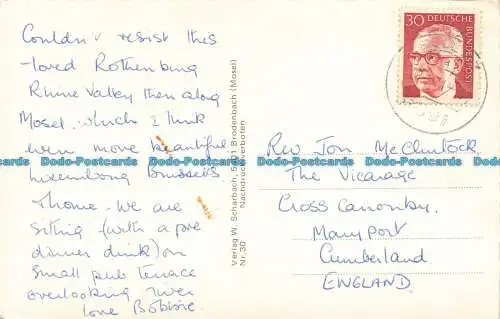 Couldn't resist this
-loved Rothenburg
Rhine Valley then along
Mosel, which I think
even more beautiful
Luxembourg Brussels
& home - We are
sitting (with a pre
dinner drink) on
small pub terrace
overlooking river
love Bobbie
Verlag W. Scharbach, 5401 Brodenbach (Mosel)
Nachdruck verboten
Nr. 30
30 DEUTSCHE
BUNDESPOST
Rev Jon McClintock
The Vicarage
Cross Canonby.
Maryport
Cumberland
ENGLAND.
Dodo-Postcards Dodo-Postcards Dodo-Postcards Dodo-Postcards Dodo-Postcards